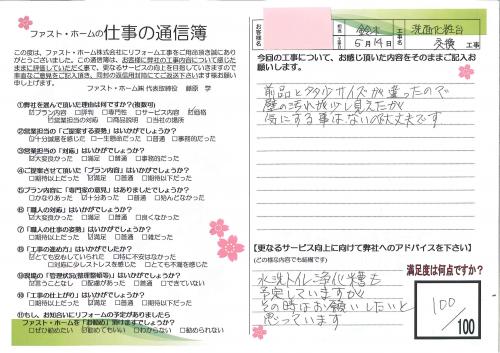 ファスト・ホームの仕事の通信簿
この度は、ファスト・ホーム株式会社にリフォーム工事をご用命頂き誠にあり
がとうございました。この通信簿は、お客様に弊社の工事内容について感じた
ままに評価していただく事で、更なるサービスの向上を目指していきますので
率直なご意見をご記入頂き、同封の返信用封筒にてご返送下さいます様お願い
申し上げます。
ファスト・ホーム㈱ 代表取締役 藤原 学
①弊社を選んで頂いた理由は何ですか?(複数可)
☑プラン内容 □評判 □専門性 □サービス内容 ☑価格
☑営業担当の対応 □商品説明 □当社の連携
②営業担当の「ご提案する姿勢」はいかがでしょうか?
☑十分誠意を感じた □一生懸命だった □普通 □事務的だった
③営業担当の「対応」はいかがでしょうか?
☑大変良かった □満足 □普通 □事務的だった
④ご提案させて頂いた「プラン内容」はいかがでしょうか?
□期待以上だった ☑満足 □普通 □不満
⑤プラン内容に「専門家の意見」はありましたでしょうか?
□かなりあった ☑十分あった □普通 □殆んどなかった
⑥「職人の対応」はいかがでしょうか?
☑大変良かった □満足 □普通 □良くなかった
⑦「職人の仕事の姿勢」はいかがでしょうか?
□期待以上だった ☑満足 □普通 □雑だった
⑧「工事の進め方」はいかがでしたか?
☑とても安心していられた □特に不安はなかった
□対応に少しストレスを感じた □とても不満を感じた
⑨現場の「管理状況(整理整頓等)」はいかがでしょうか?
☑言うことなし □配慮があった □普通 □できていない
⑩「工事の仕上がり」はいかがでしょうか?
□期待以上だった ☑満足 □普通 □期待以下だった
⑪もし、お知合いにリフォームの予定がありましたら
ファスト・ホームを「お勧め」頂けますでしょうか?
□ぜひ勧めたい ☑勧めてもいい □わからない □勧められない
お客様名
担当 鈴木
工事日 5月19日
工事名 洗面化粧台
交換 工事
今回の工事について、お感じ頂いた内容をそのままご記入お
願いします。
前品と多少サイズが違ったので
壁の汚れが少し見えたが
気にする事はないので大丈夫です
【更なるサービス向上に向けて弊社へのアドバイスを下さい】
(どの様な内容でも結構です)
水洗トイレ浄化槽も
予定していますが
その時はお願いしたいと
思っています
満足度は何点ですか?
100/100